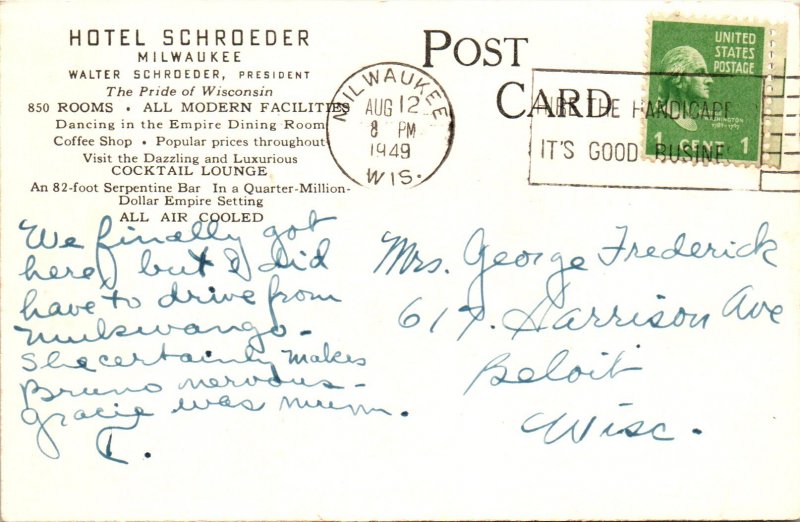 HOTEL SCHROEDER
MILWAUKEE
WALTER SCHROEDER, PRESIDENT
The Pride of Wisconsin
850 ROOMS · ALL MODERN FACILITIES
Dancing in the Empire Dining Room
Coffee Shop · Popular prices throughout
Visit the Dazzling and Luxurious
COCKTAIL LOUNGE
An 82-foot Serpentine Bar In a Quarter-Million-
Dollar Empire Setting
ALL AIR COOLED
We finally got
here, but I did
have to drive from
Mukwango -
She certainly makes
Bruno nervous -
Gracie was mum.
T.
POST
CARD
MILWAUKEE
AUG 12
8 PM
1949
WIS.
THE HANDICAPP
IT'S GOOD BUSINE
UNITED
STATES
POSTAGE
GEORGE
WASHINGTON
1789-1797
1 CENT 1
Mrs. George Frederick
617. Harrison Ave
Beloit
Wisc.